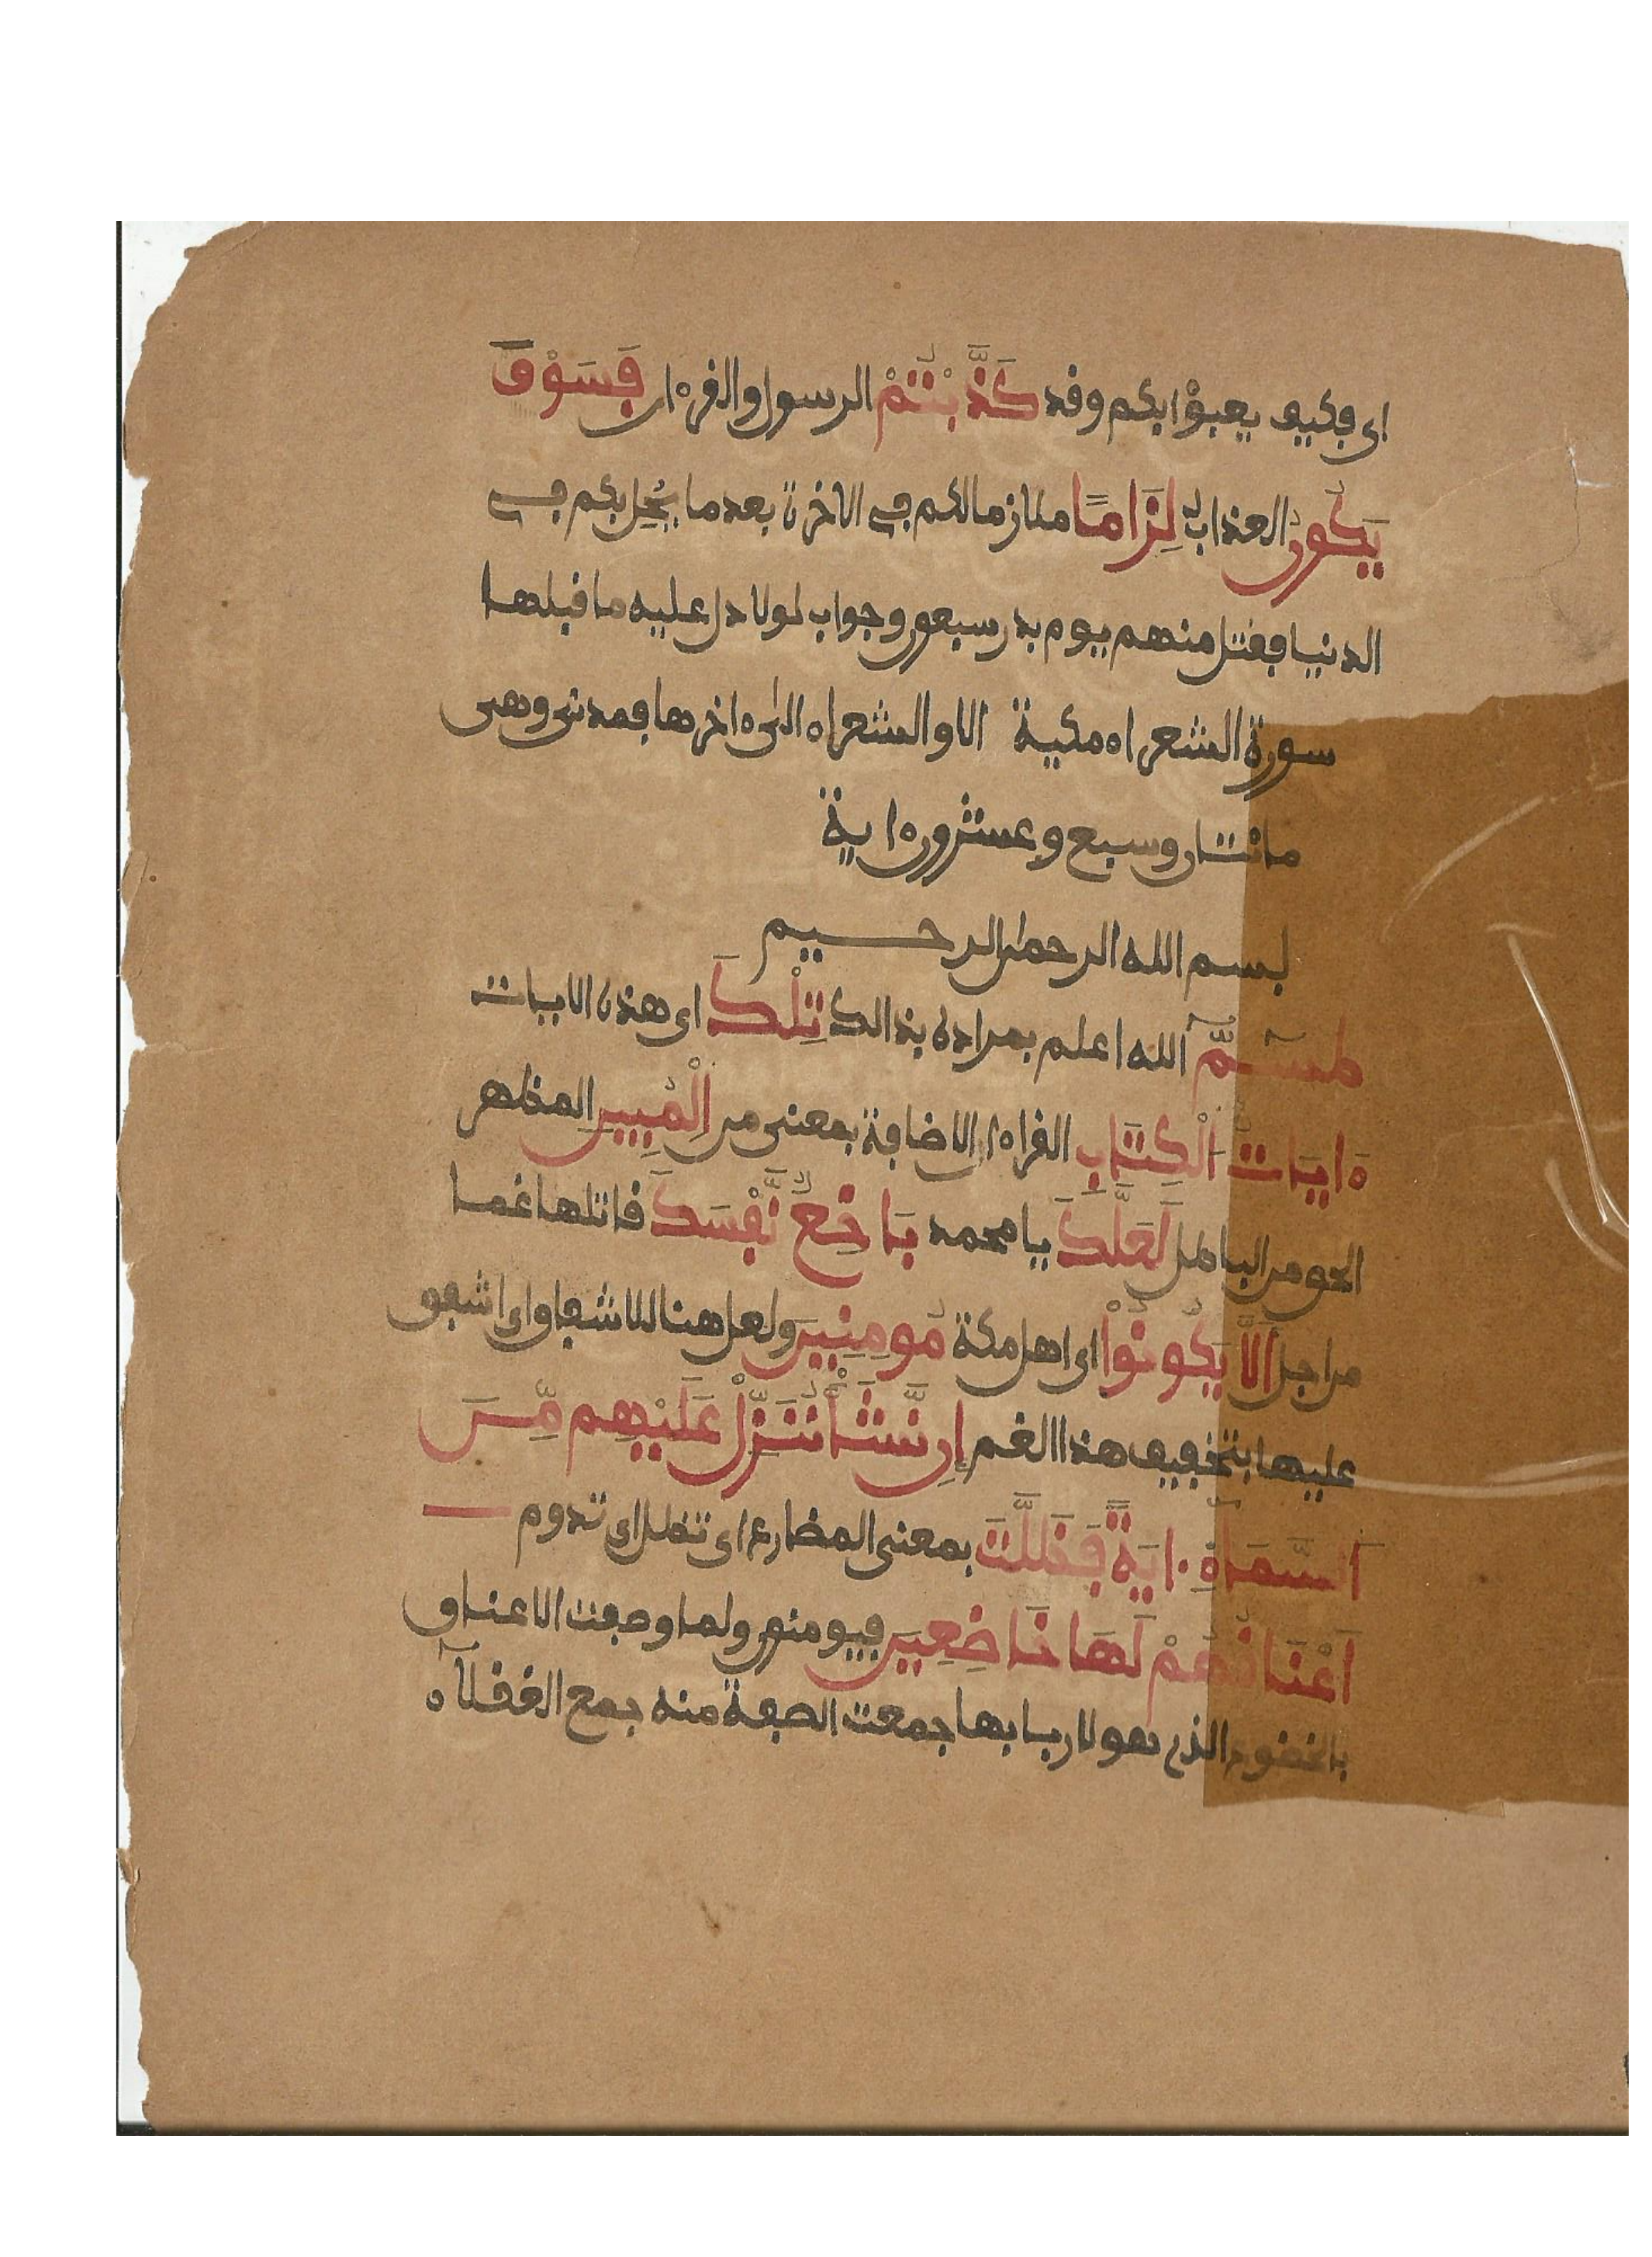 اي فكيف يعبؤا بكم وقد كَذَّبْتُمْ الرسول والقرءان فَسَوْفَ
يَكُونُ العذاب لِزَامًا ملازما لكم في الاخرة بعد ما يحل بكم في
الدنيا فقتل منهم يوم بدر سبعون وجواب لولا دل عليه ما قبلها
سورة الشعراء مكية الا والشعراء الى ءاخرها فمدني وهي
مائتان وسبع وعشرون ءاية
بسم الله الرحمن الرحيم
طسٓمٓ الله اعلم بمراده بذالك تِلْكَ اي هذه الايات
ءَايَاتُ الْكِتَابِ القرءان الاضافة بمعنى من الْمُبِينِ المظهر
الحق من الباطل لَعَلَّكَ يا محمد بَاخِعٌ نَّفْسَكَ قاتلها غما
من اجل أَلَّا يَكُونُواْ اي اهل مكة مُومِنِينَ ولعل هنا للاشفاق اي اشفق
عليها بتخفيف هذا الغم إِن نَّشَأْ نُنَزِّلْ عَلَيْهِم مِّنَ
اَلسَّمَاءِ ءايَةً فَظَلَّتَ بمعنى المضارع اي تظل اي تدوم
أَعْنَاقُهُمْ لَهَا خَاضِعِينَ فيومنون ولما وصفت الاعناق
بالخضوع الذي هو لاربابها جمعت الصفة منه جمع العقلاء